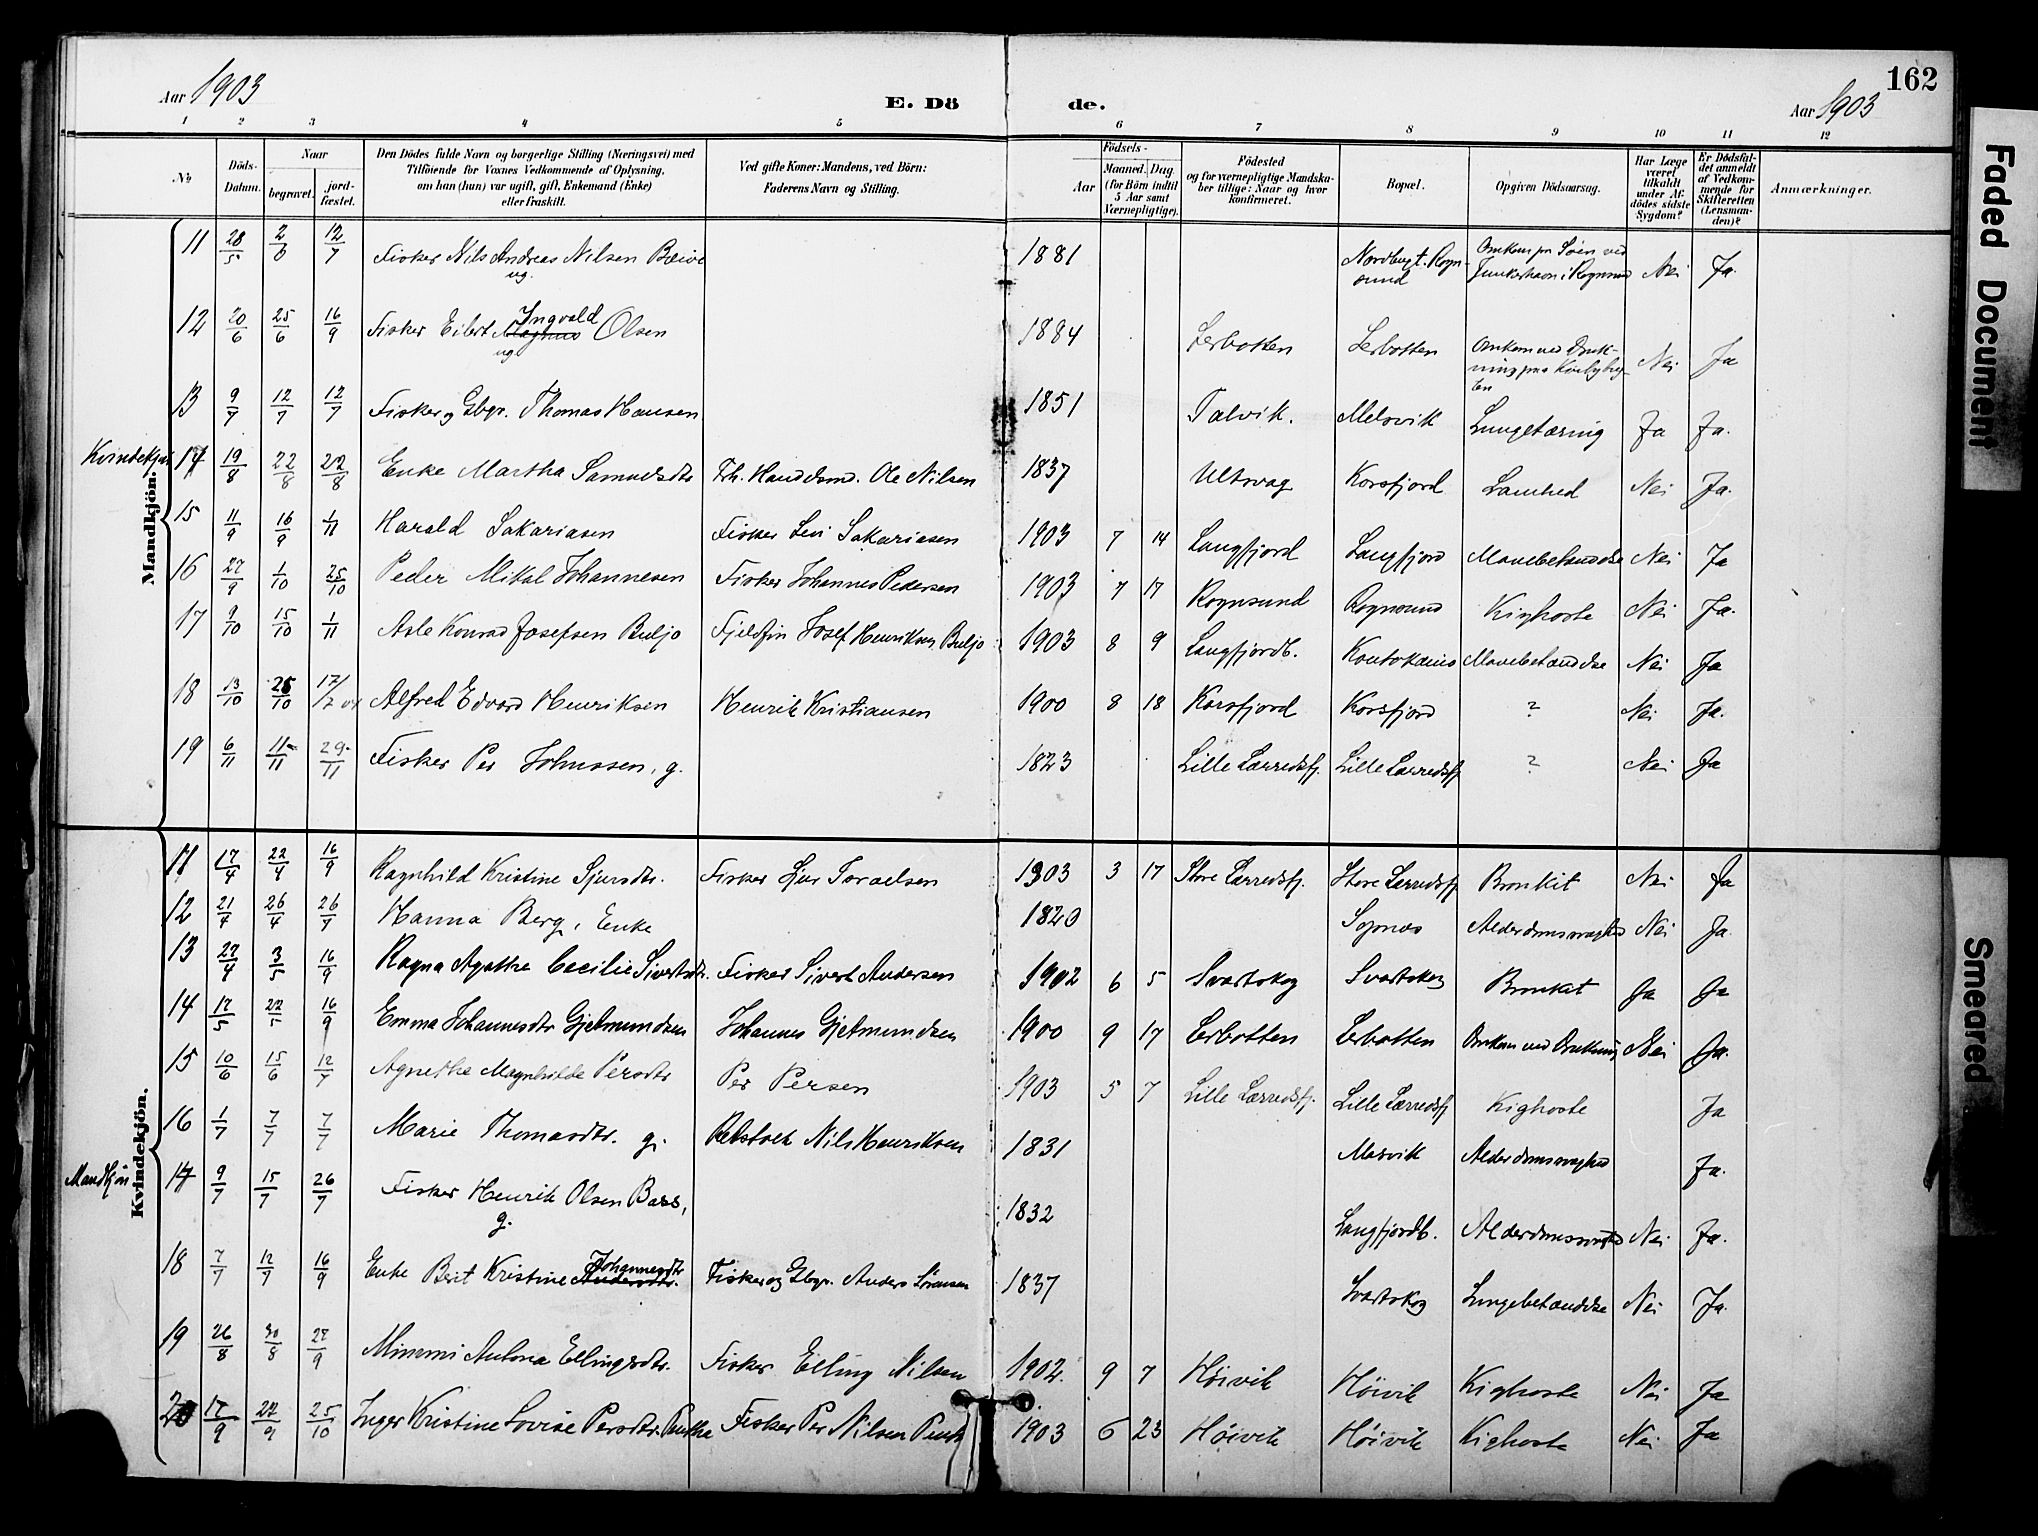 162
Aar 1903
E. Dö
de.
Aar 1903
1 2 3 4 5 6 7 8 9 10 11 12
No
Döds-Datum.
Naar
begravet.
jord-fæstet.
Den Dödes fulde Navn og borgerlige Stilling (Næringsvei) med
Tilföiende for Voxnes Vedkommende af Oplysning,
om han (hun) var ugift, gift, Enkemand (Enke)
eller fraskilt.
Ved gifte Koner: Mandens, ved Börn:
Faderens Navn og Stilling.
Födsels-
Aar
Maaned. Dag
(for Börn indtil
5 Aar samt
Værnepligtige).
Födested
og for værnepligtige Mandska-
ber tillige: Naar og hvor
konfirmeret.
Bopæl.
Opgiven Dödsaarsag.
Har Læge
været
tilkaldt
under Af-
dödes sidste
Sygdom?
Er Dödsfal-
det anmeldt
af Vedkom-
mende for
Skifteretten
(Lensman-
den)?
Anmærkninger.
Mandkjön.
11 28/5 2/6 12/7 Fisker Nils Andreas Nilsen Bæivi 1881 Nordbugt. Rogn- Omkom på Søen ved
ug. sund Junkerhavn i Rognsund Nei Ja.
12 20/6 25/6 16/9 Fisker Eilert Ingvald Olsen 1884 Lerbotten Lerbotten Omkom ved Druk- Nei Ja
ug.
13 9/7 12/7 12/7 Fisker og Gbgr. Thomas Hansen 1851 Talvik. Melsvik Lungetæring Ja Ja.
Kvindekjøn 14 19/8 22/8 22/8 Enke Martha Samuelsdtr Fh. Handelsmd. Ole Nilsen 1837 Ultsvag Korsfjord Lamhed Nei Ja.
15 11/9 16/9 1/11 Harald Sakariasen Fisker Levi Sakariasen 1903 7 14 Langfjord Langfjord Mavebetændelse Nei Ja
16 27/9 1/10 25/10 Peder Mikal Johannesen Fisker Johannes Pedersen 1903 7 17 Rognsund Rognsund Kighoste Nei Ja.
17 9/10 15/10 1/11 Asle Konrad Josefsen Buljo Fjeldfin Josef Henriksen Buljo 1903 8 9 Langfjordb. Koutokæino Mavebetændelse Nei Ja
18 13/10 25/10 17/2 04 Alfred Edvard Henriksen Henrik Kristiansen 1900 8 18 Korsfjord Korsfjord ? Nei Ja.
19 6/11 11/11 29/11 Fisker Per Johnssen, g. 1823 Lille Lærredsfj. Lille Lærredsfj ? Nei Ja
Kvindekjön.
11 17/4 22/4 16/9 Ragnhild Kristine Sjursdtr. Fisker Sjur Israelsen 1903 3 17 Store Lærredsfj. Store Lærredsfj Bronkit Nei Ja
12 21/4 26/4 26/7 Hanna Berg, Enke 1820 Sopnes Alderdomssvaghed Nei Ja.
13 27/4 3/5 16/9 Ragna Agathe Cecilie Sivertsdtr. Fisker Sivert Andersen 1902 6 5 Svartskog Svartskog Bronkit Ja Ja
14 17/5 22/5 16/9 Emma Johannesdtr Gjetmundsen Johannes Gjetmundsen 1900 9 17 Lerbotten Lerbotten Omkom ved Drukning Nei Ja.
15 10/6 15/6 12/7 Agnethe Magnhilde Persdtr Per Persen 1903 5 7 Lille Lærredsfj. Lille Lærredsfj Kighoste Ja
16 1/7 7/7 7/7 Marie Thomasdtr. g. Nils Henriksen 1831 Masvik Alderdomssvaghed Ja.
Mandkjøn 17 9/7 15/7 26/7 Fisker Henrik Olsen Bass, 1832 Langfjordb. Alderdomssvaghed Nei Ja.
g.
18 7/7 12/7 16/9 Enke Berit Kristine Andersdtr. Johannesdtr Fisker og Gbgr. Anders Sørensen 1837 Svartskog Lungebetændelse Nei Ja.
19 26/8 30/8 27/9 Mimmi Antona Ellingsdtr. Fisker Elling Nilsen 1902. 9 7 Høivik Høivik Kighoste Nei Ja
20 17/9 22/9 25/10 Inger Kristine Lovise Persdtr. Fisker Per Nilsen 1903 6 23 Høivik Høivik Kighoste Nei Ja
Faded Document
Smeared